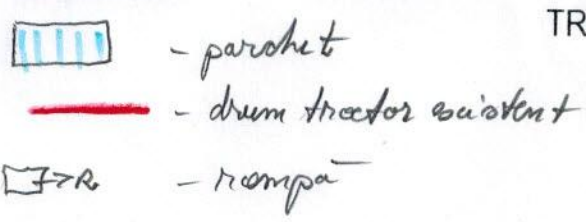 TR
- parchet
- drum tractor existent
R. - rampă